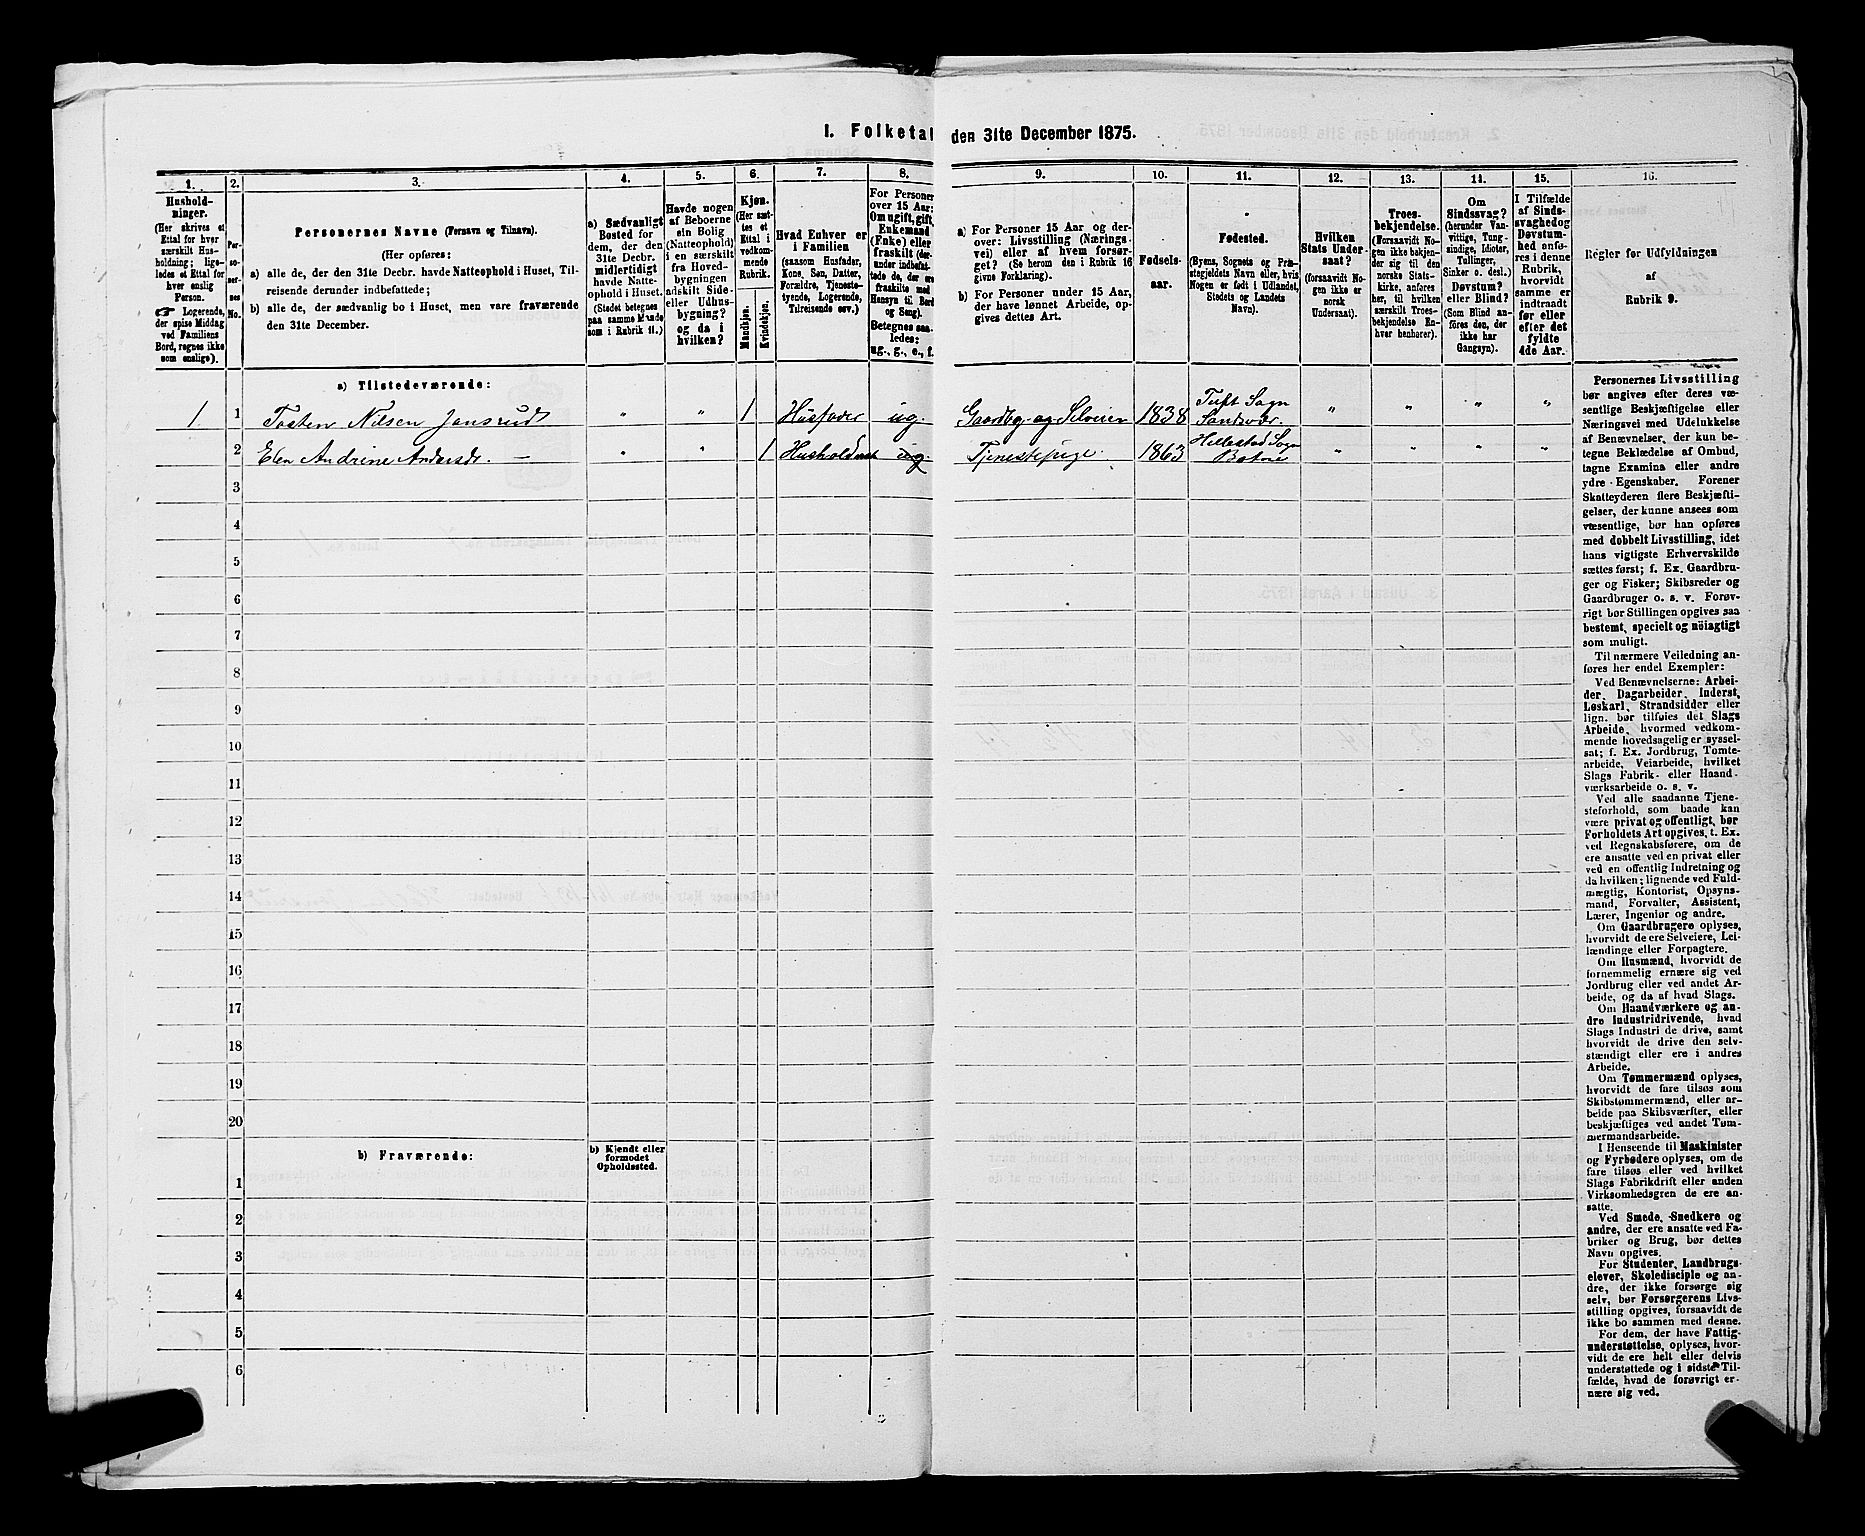 1. Folketal den 31te December 1875.
1.
2.
3.
4.
5.
6.
7.
8.
9.
10.
11.
12.
13.
14.
15.
16.
Husholdninger.
(Her skrives et Ettal for hver særskilt Husholdning; ligeledes et Ettal for hver enslig Person.
☞ Logerende, der spise Middag ved Familiens Bord, regnes ikke som enslige).
Personernes No.
Personernes Navne (Fornavn og Tilnavn).
(Her opføres:
a) alle de, der den 31te Decbr. havde Natteophold i Huset, Tilreisende derunder indbefattede;
b) alle de, der sædvanlig bo i Huset, men vare fraværende den 31te December.
a) Sædvanligt Bosted for dem, der den 31te Decbr. midlertidigt havde Natteophold i Huset.
(Stedet betegnes paa samme Maade som i Rubrik 11.)
Havde nogen af Beboerne sin Bolig (Natteophold) i en særskilt fra Hovedbygningen adskilt Side- eller Udhusbygning? og da i hvilken?
Kjøn.
(Her sættes et Ettal i vedkommende Rubrik.
Mandkjøn.
Kvindekjøn.
Hvad Enhver er i Familien
(saasom Husfader, Kone, Søn, Datter, Forældre, Tjenestetyende, Logerende, Tilreisende osv.)
For Personer over 15 Aar: Om ugift, gift, Enkemand (Enke) eller fraskilt (derunder indbefattede de, der ere fraskilte med Hensyn til Bord og Seng).
Betegnes saaledes: ug., g., e., f.
a) For Personer 15 Aar og derover: Livsstilling (Næringsvei) eller af hvem forsørget? (Se herom den i Rubrik 16 givne Forklaring).
b) For Personer under 15 Aar, der have lønnet Arbeide, opgives dettes Art.
Fødselsaar.
Fødested.
(Byens, Sognets og Præstegjeldets Navn eller, hvis Nogen er født i Udlandet, Stedets og Landets Navn).
Hvilken Stats Undersaat?
(forsaavidt Nogen ikke er norsk Undersaat).
Troesbekjendelse.
(Forsaavidt Nogen ikke bekjender sig til den norske Statskirke, anføres her, til hvilken særskilt Troesbekjendelse Enhver henhører).
Om Sindssvag? (herunder Vanvittige, Tungsindige, Idioter, Tullinger, Sinker o. desl.) Døvstum? eller Blind?
(Som Blind anføres den, der ikke har Gangsyn).
I Tilfælde af Sindssvaghed og Døvstumhed anføres i denne Rubrik, hvorvidt samme er indtraadt før eller efter det fyldte 4de Aar.
Regler for Udfyldningen
af
Rubrik 9.
a) Tilstedeværende:
1 1 Tosten Nilsen Jonsrud " " 1 Husfader ug. Gaardbr. og Selveier 1838 Tuft Sogn Sandsvær. " " " "
2 Elen Andrine Andersdr. — " " 1 Husholderske ug. Tjenestepige. 1863 Hillestad Sogn Botne " " " "
3
4
5
6
7
8
9
10
11
12
13
14
15
16
17
18
19
20
b) Fraværende:
b) Kjendt eller formodet Opholdssted.
1
2
3
4
5
6
Personernes Livsstilling
bør angives efter deres væ-
sentlige Beskjæftigelse eller
Næringsvei med Udelukkelse
af Benævnelser, der kun be-
tegne Beklædelse af Ombud,
tagne Examina eller andre
ydre Egenskaber. Forener
Skatteyderen flere Beskjæfti-
gelser, der kunne ansees som
væsentlige, bør han opføres
med dobbelt Livsstilling, idet
hans vigtigste Erhvervskilde
sættes først; f. Ex. Gaardbru-
ger og Fisker; Skibsreder og
Gaardbruger o. s. v. Forøv-
rigt bør Stillingen opgives saa
bestemt, specielt og nøiagtigt
som muligt.
Til nærmere Veiledning an-
føres her endel Exempler:
Ved Benævnelserne: Arbei-
der, Dagarbeider, Inderst,
Løskarl, Strandsidder eller
lign. bør tilføies det Slags
Arbeide, hvormed vedkom-
mende hovedsagelig er syssel-
sat; f. Ex. Jordbrug, Tomte-
arbeide, Veiarbeide, hvilket
Slags Fabrik- eller Haand-
værksarbeide o. s. v.
Ved alle saadanne Tjene-
steforhold, som baade kan
være privat og offentligt, bør
Forholdets Art opgives, t. Ex.
ved Regnskabsførere, om de
ere ansatte ved en privat eller
ved en offentlig Indretning og
da hvilken; lignende ved Fuld-
mægtig, Kontorist, Opsyns-
mand, Forvalter, Assistent,
Lærer, Ingeniør og andre.
Om Gaardbrugere oplyses,
hvorvidt de ere Selveiere, Lei-
lændinge eller Forpagtere.
Om Husmænd, hvorvidt de
fornemmelig ernære sig ved
Jordbrug eller ved andet Ar-
beide, og da af hvad Slags.
Om Haandværkere og an-
dre Industridrivende, hvad
Slags Industri de drive, samt
hvorvidt de drive den selv-
stændigt eller ere i andres
Arbeide.
Om Tømmermænd oplyses,
hvorvidt de fare tilsøs som
Skibstømmermænd, eller ar-
beide paa Skibsværfter, eller
beskjæftiges ved andet Tøm-
mermandsarbeide.
I Henseende til Maskinister
og Fyrbødere oplyses, om de
fare tilsøs eller ved hvilket
Slags Fabrikdrift eller anden
Virksomhedsgren de ere an-
satte.
Ved Smede, Snedkere og
andre, der ere ansatte ved Fa-
briker og Brug, bør dettes
Navn opgives.
For Studenter, Landbrugs-
elever, Skoledisciple og an-
dre, der ikke forsørge sig
selv, bør Forsørgerens Livs-
stilling opgives, forsaavidt de
ikke bo sammen med denne.
For dem, der have Fattig-
understøttelse, oplyses, hvor-
vidt de ere helt eller delvis
understøttede og i sidste Til-
fælde, hvad de forøvrigt er-
nære sig ved.